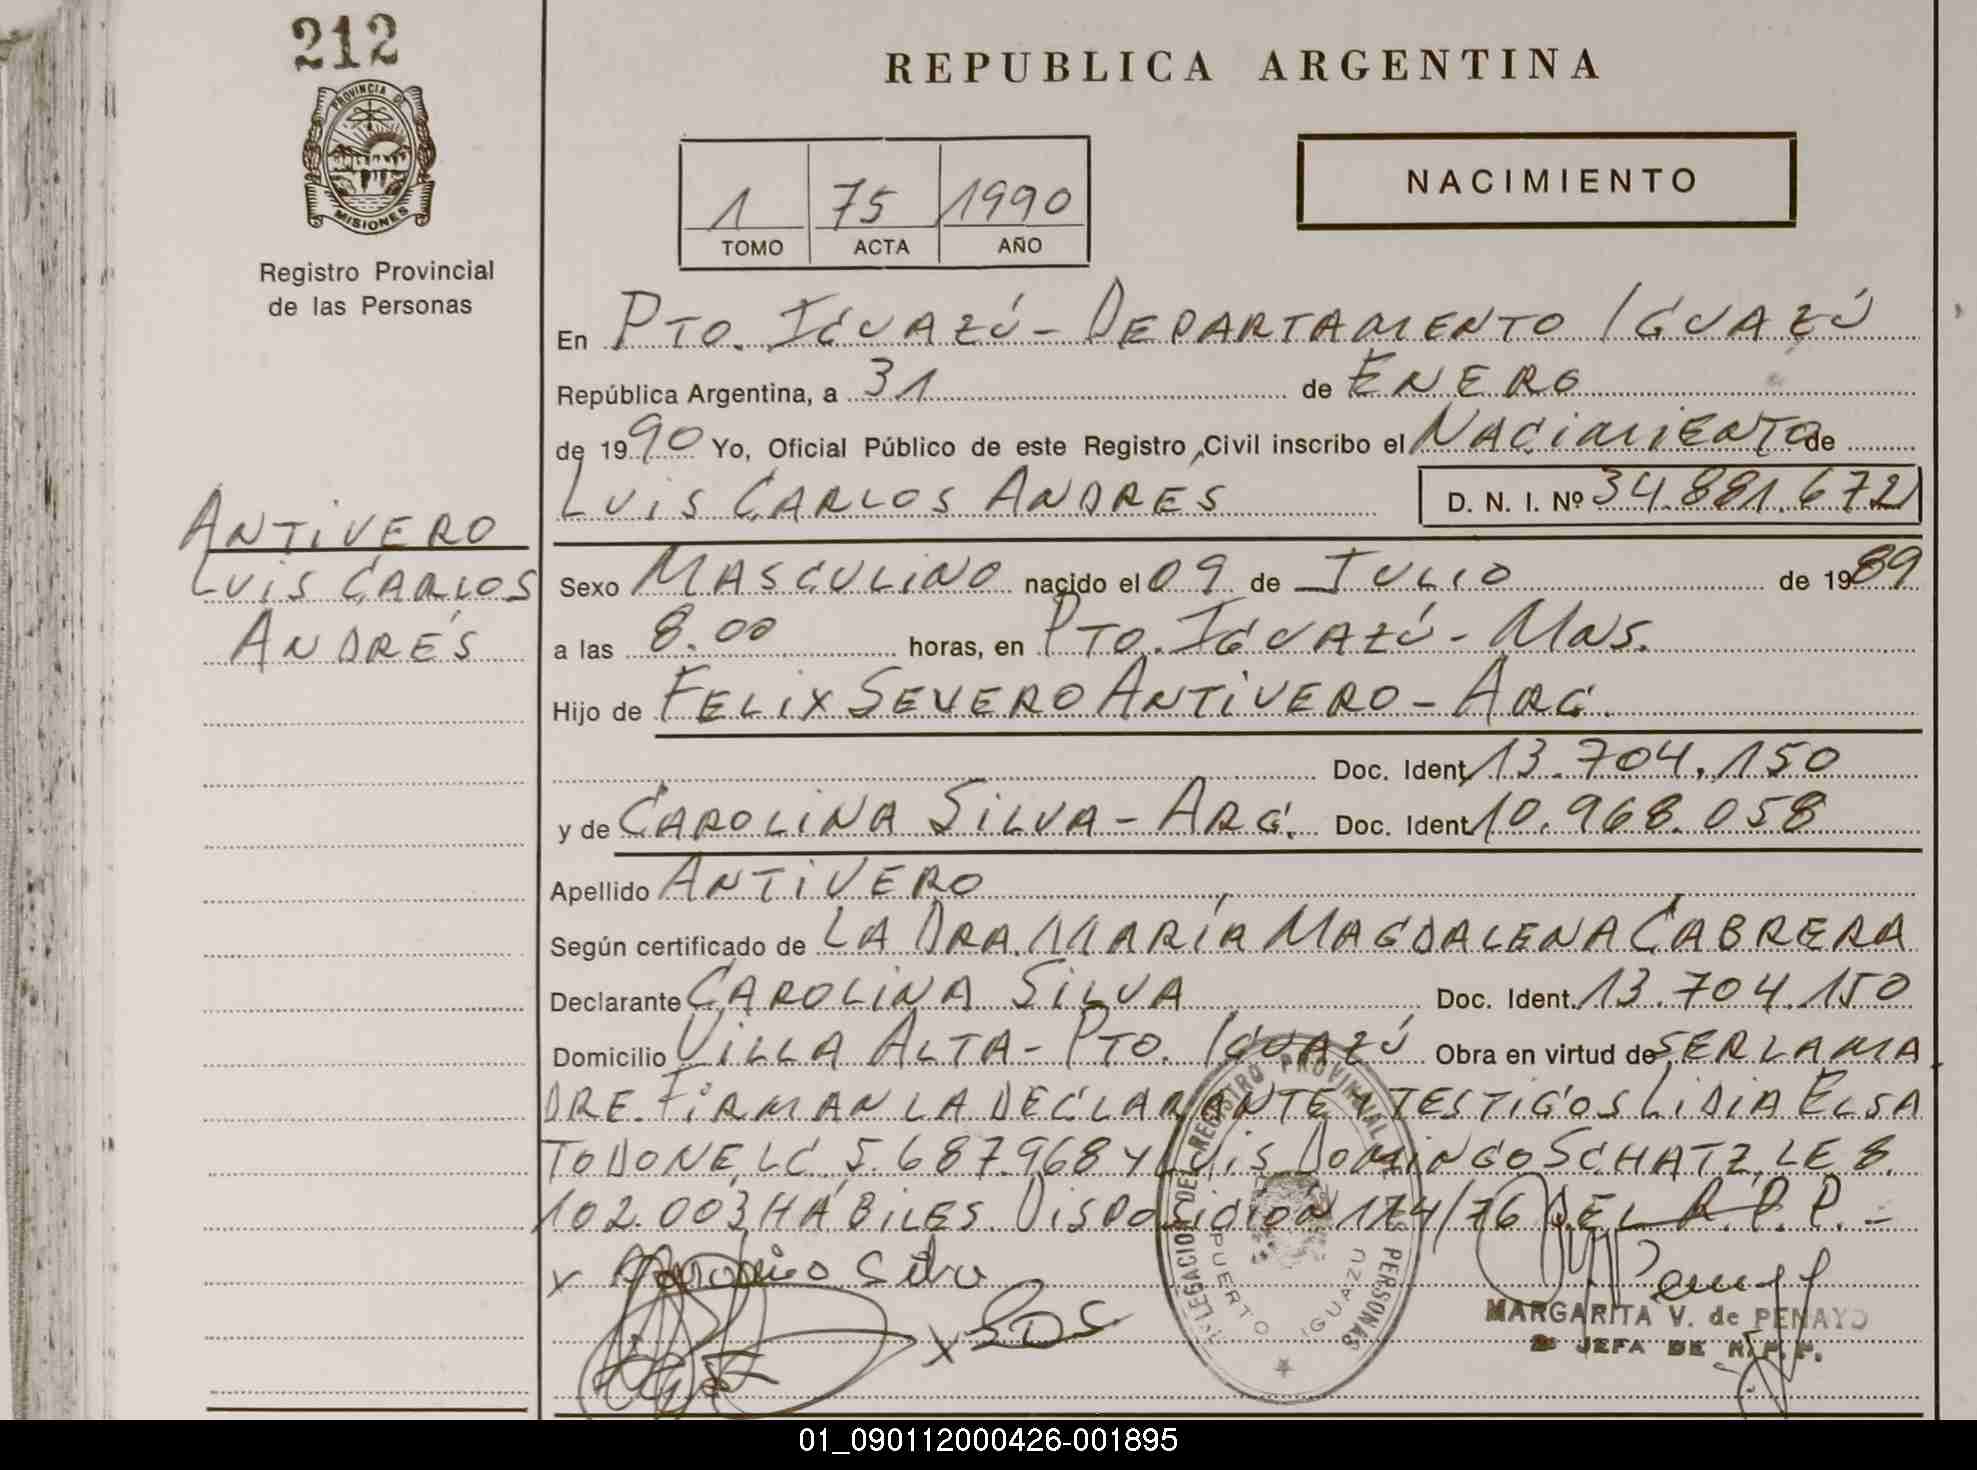 212
PROVINCIA DE
MISIONES
Registro Provincial
de las Personas
REPUBLICA ARGENTINA
1 75 1990
TOMO ACTA AÑO
NACIMIENTO
En PTO. IGUAZÚ - DEPARTAMENTO IGUAZÚ
República Argentina, a 31 de ENERO
de 1990 Yo, Oficial Público de este Registro Civil inscribo el NACIMIENTO de
LUIS CARLOS ANDRES D. N. I. Nº 34.881.672
ANTIVERO
LUIS CARLOS
ANDRÉS
Sexo MASCULINO nacido el 09 de JULIO de 1989
a las 8.00 horas, en PTO. IGUAZÚ - MNS.
Hijo de FELIX SEVERO ANTIVERO - ARG.
Doc. Ident. 13.704.150
y de CAROLINA SILVA - ARG. Doc. Ident. 10.968.058
Apellido ANTIVERO
Según certificado de LA DRA. MARÍA MAGDALENA CABRERA
Declarante CAROLINA SILVA Doc. Ident. 13.704.150
Domicilio VILLA ALTA - PTO. IGUAZÚ Obra en virtud de SER LA MA
DRE. FIRMAN LA DECLARANTE TESTIGOS LIDIA ELSA
TODONE LC 5.687.968 Y LUIS DOMINGO SCHATZ, LE 8.
102.003 HÁBILES. DISPOSICIÓN 174/76 DEL R.P.P. -
DELEGACION DEL REGISTRO PROVINCIAL DE LAS PERSONAS
PUERTO IGUAZU
x Silva
x
MARGARITA V. de PENAYO
JEFA DE
01_090112000426-001895